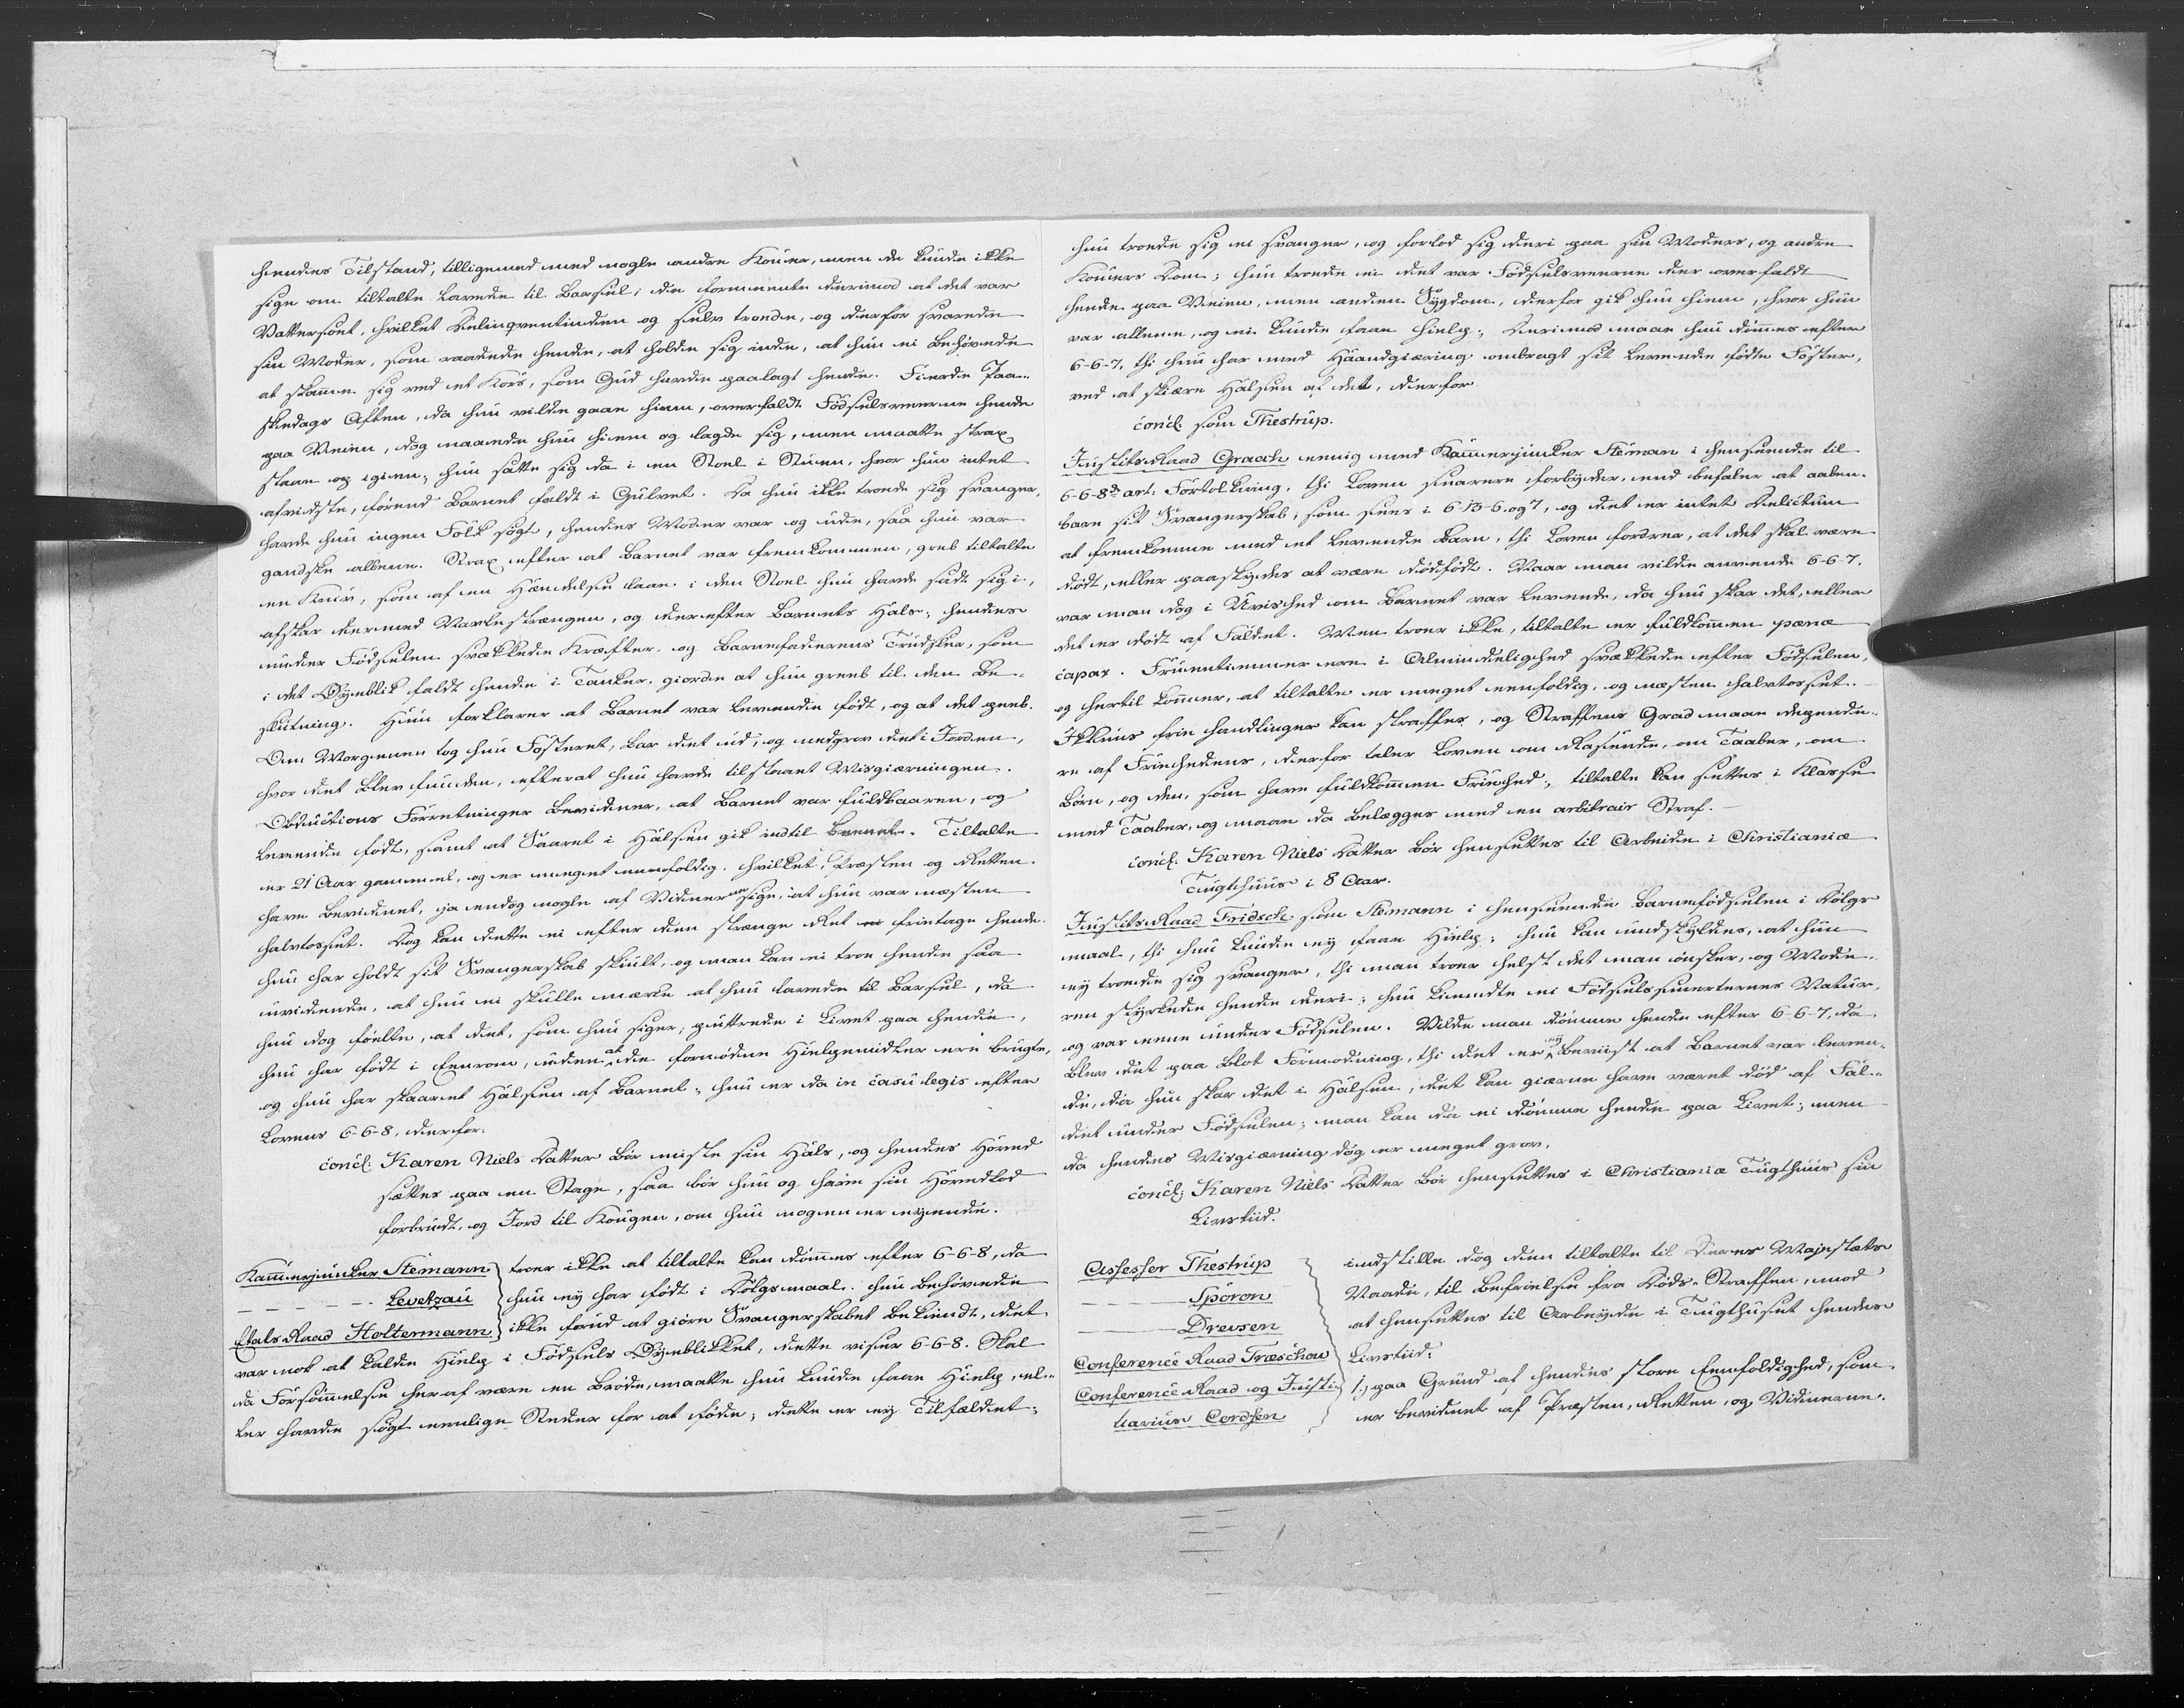 hendes Tilstand, tilligemed med nogle andre Koner, men de kunde ikke
sige om tiltalte lavede til Barsel; de formeente derimod at det var
Vattersoet, hvilket Delinqventinden og selv troede, og derfor svarede
sin Moder, som raadede hende, at holde sig inde, at hun ei behøvede
at skamme sig ved et Kors, som Gud havde paalagt hende. Fierde Paa-
skedags Aften, da hun vilde gaae hiem, overfaldt Fødselsveerne hende
paa Veien, dog naaede hun hiem og lagde sig, men maatte strax
staae op igien; hun satte sig da i en Stoel i Stuen, hvor hun intet
afvidste, førend Barnet faldt i Gulvet. Da hun ikke troede sig svanger,
havde hun ingen Folk søgt, hendes Moder var og ude, saa hun var
gandske allene. Strax efter at Barnet var fremkommen, greb tiltalte
en Kniv, som af en Hændelse laae i den Stoel hun havde sadt sig i,
afskar dermed Navlestrængen, og derefter Barnets Hals; hendes
under Fødselen svækkede Kræfter, og Barnefaderens Trudsler, som
i det Øyeblik faldt hende i Tanker, giorde at hun greeb til den Be-
slutning. Hun forklarer at Barnet var levende født, og at det peeb.
Om Morgenen tog hun Fosteret, bar det ud, og nedgrov det i Jorden,
hvor det blev funden, efterat hun havde tilstaaet Misgierningen.
Obductions Forretninger bevidner, at Barnet var fuldbaaren, og
levende født, samt at Saaret i Halsen gik indtil Beenet. Tiltalte
er 21 Aar gammel, og er meget eenfoldig, hvilket, Præsten og Retten
have bevidnet, ja endog nogle af Vidnerne sige, at hun var næsten
halvtosset. Dog kan dette ei efter den strænge Ret ei frietage hende.
hun har holdt sit Svangerskab skiult, og man kan ei troe hende saa
uvidende, at hun ei skulle mærke at hun lavede til Barsel, da
hun dog følte, at det, som hun siger, puttrede i Livet paa hende,
hun har født i Eenrom, uden at de fornødne Hielpemidler ere brugte,
og hun har skaaret Halsen af Barnet; hun er da in casu legis efter
Lovens 6-6-8, derfor.
concl: Karen Niels Datter bør miste sin Hals, og hendes Hoved
sættes paa en Stage, saa bør hun og have sin Hovedlod
forbrudt, og Jord til Kongen, om hun nogen er eyende.
Kammerjunker Stemann
Levetzau
Etats Raad Holtermann
troer ikke at tiltalte kan dømmes efter 6-6-8, da
hun ey har født i Dølgsmaal. hun behøvede
ikke forud at giøre Svangerskabet bekiendt, det
var nok at kalde Hielp i Fødsels Øyeblikket, dette viser 6-6-8. Skal
da Forsømmelse heraf være en Brøde, maatte hun kunde faae Hielp, el-
ler havde søgt eenlige Steder for at føde; dette er ey Tilfældet;
hun troede sig ei svanger, og forlod sig deri paa sin Moders, og andre
Koners Dom; hun troede ei det var Fødselsveerne der overfaldt
hende paa Veien, men anden Sygdom, derfor gik hun hiem, hvor hun
var allene, og ei kunde faae Hielp; Derimod maae hun dømmes efter
6-6-7, thi hun har med Haandgierning ombragt sit levende fødte Foster,
ved at skiære Halsen af det, derfor
concl: som Thestrup.
Justits Raad Graah eenig med Kammerjunker Stemann i henseende til
6-6-8de art. Fortolkning, thi Loven snarere forbyder, end befaler at aaben-
bare sit Svangerskab, som sees i 6-13-6 og 7, og det er intet Delictum
at fremkomme med et levende Barn, thi Loven fordrer, at det skal være
dødt, eller paaskydes at være dødfødt. Naar man vilde anvende 6-6-7,
var man dog i Uvished om Barnet var levende, da hun skar det, eller
det er dødt af Faldet. Men troer ikke, tiltalte er fuldkommen pænæ
capax. Fruentimmer ere i Almindelighed svækkede efter Fødselen,
og hertil kommer, at tiltalte er meget eenfoldig, og næsten halvtosset.
Ikkuns frie Handlinger kan straffes, og Straffens Grad maae depende-
re af Friehedens, derfor taler Loven om Rasende, om Taaber, om
Børn, og den, som have fuldkommen Friehed; tiltalte kan sættes i Klasse
med Taaber, og maae da belægges med en arbitrair Straf.
concl. Karen Niels Datter bør hensættes til Arbeide i Christianiæ
Tugthuus i 8 Aar.
Justits Raad Fridsch som Stemann i henseende Barnefødselen i Dølgs-
maal, thi hun kunde ey faae Hielp; hun kan undskyldes, at hun
ey troede sig svanger, thi man troer helst det man ønsker, og Mode-
ren styrkede hende deri; hun kiendte ei Fødselssmerternes Natur,
og var eene under Fødselen. Vilde man dømme hende efter 6-6-7, da
blev det paa blot Formodning, thi det er ey beviist at Barnet var leven-
de, da hun skar det i Halsen, det kan gierne have været død af Fal-
det under Fødselen; man kan da ei dømme hende paa Livet; men
da hendes Misgierning dog er meget grov,
concl: Karen Niels Datter bør hensættes i Christianiæ Tugthuus sin
Livstiid.
Assessor Thestrup
Sporon
Drewsen
Conference Raad Træschow
Conference Raad og Justi-
tiarius Cordsen
indstille dog den tiltalte til Deres Majestæts
Naade, til Befrielse fra Døds-Straffen, mod
at hensættes til Arbeyde i Tugthuset hendes
Livstiid:
1.) paa Grund af hendes store Eenfoldighed, som
er bevidnet af Præsten, Retten, og Vidnerne.